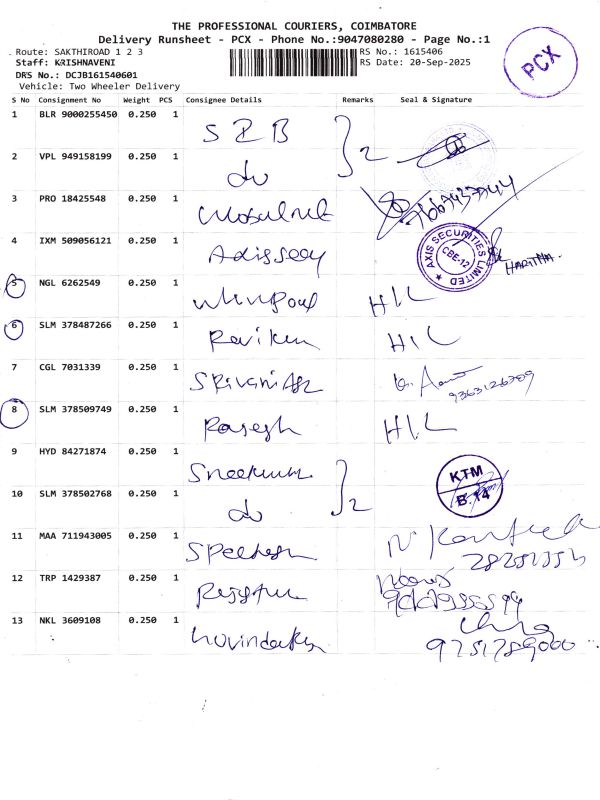 THE PROFESSIONAL COURIERS, COIMBATORE
Delivery Runsheet - PCX - Phone No.:9047080280 - Page No.:1
Route: SAKTHIROAD 1 2 3
RS No.: 1615406
Staff: KRISHNAVENI
RS Date: 20-Sep-2025
DRS No.: DCJB161540601
Vehicle: Two Wheeler Delivery
PCX
S No Consignment No Weight PCS Consignee Details Remarks Seal & Signature
1 BLR 9000255450 0.250 1 SIB
2 VPL 949158199 0.250 1 do 2
3 PRO 18425548 0.250 1
4 IXM 509056121 0.250 1 AXIS SECURITIES LIMITED CBE-12 HARITHA.
5 NGL 6262549 0.250 1 H/L
6 SLM 378487266 0.250 1 H/L
7 CGL 7031339 0.250 1 9363126309
8 SLM 378509749 0.250 1 Rajesh H/L
9 HYD 84271874 0.250 1 KTM B.14
10 SLM 378502768 0.250 1 do 2
11 MAA 711943005 0.250 1
12 TRP 1429387 0.250 1
13 NKL 3609108 0.250 1 9751789000